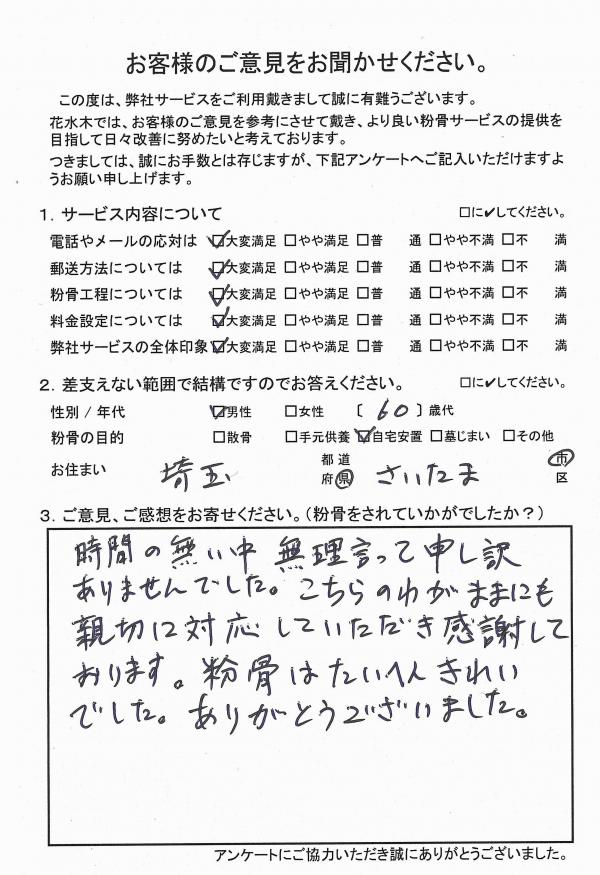 お客様のご意見をお聞かせください。
この度は、弊社サービスをご利用戴きまして誠に有難うございます。
花水木では、お客様のご意見を参考にさせて戴き、より良い粉骨サービスの提供を
目指して日々改善に努めたいと考えております。
つきましては、誠にお手数とは存じますが、下記アンケートへご記入いただけますよ
うお願い申し上げます。
1. サービス内容について □に✔してください。
電話やメールの応対は ☑大変満足 □やや満足 □普 通 □やや不満 □不 満
郵送方法については ☑大変満足 □やや満足 □普 通 □やや不満 □不 満
粉骨工程については ☑大変満足 □やや満足 □普 通 □やや不満 □不 満
料金設定については ☑大変満足 □やや満足 □普 通 □やや不満 □不 満
弊社サービスの全体印象 ☑大変満足 □やや満足 □普 通 □やや不満 □不 満
2. 差支えない範囲で結構ですのでお答えください。 □に✔してください。
性別 / 年代 ☑男性 □女性 〔 60 〕歳代
粉骨の目的 □散骨 □手元供養 ☑自宅安置 □墓じまい □その他
お住まい 埼玉 都道府県 さいたま 市区
3. ご意見、ご感想をお寄せください。(粉骨をされていかがでしたか?)
時間の無い中 無理言って申し訳
ありませんでした。こちらのわがままにも
親切に対応していただき感謝して
おります。粉骨はたいへんきれい
でした。ありがとうございました。
アンケートにご協力いただき誠にありがとうございました。